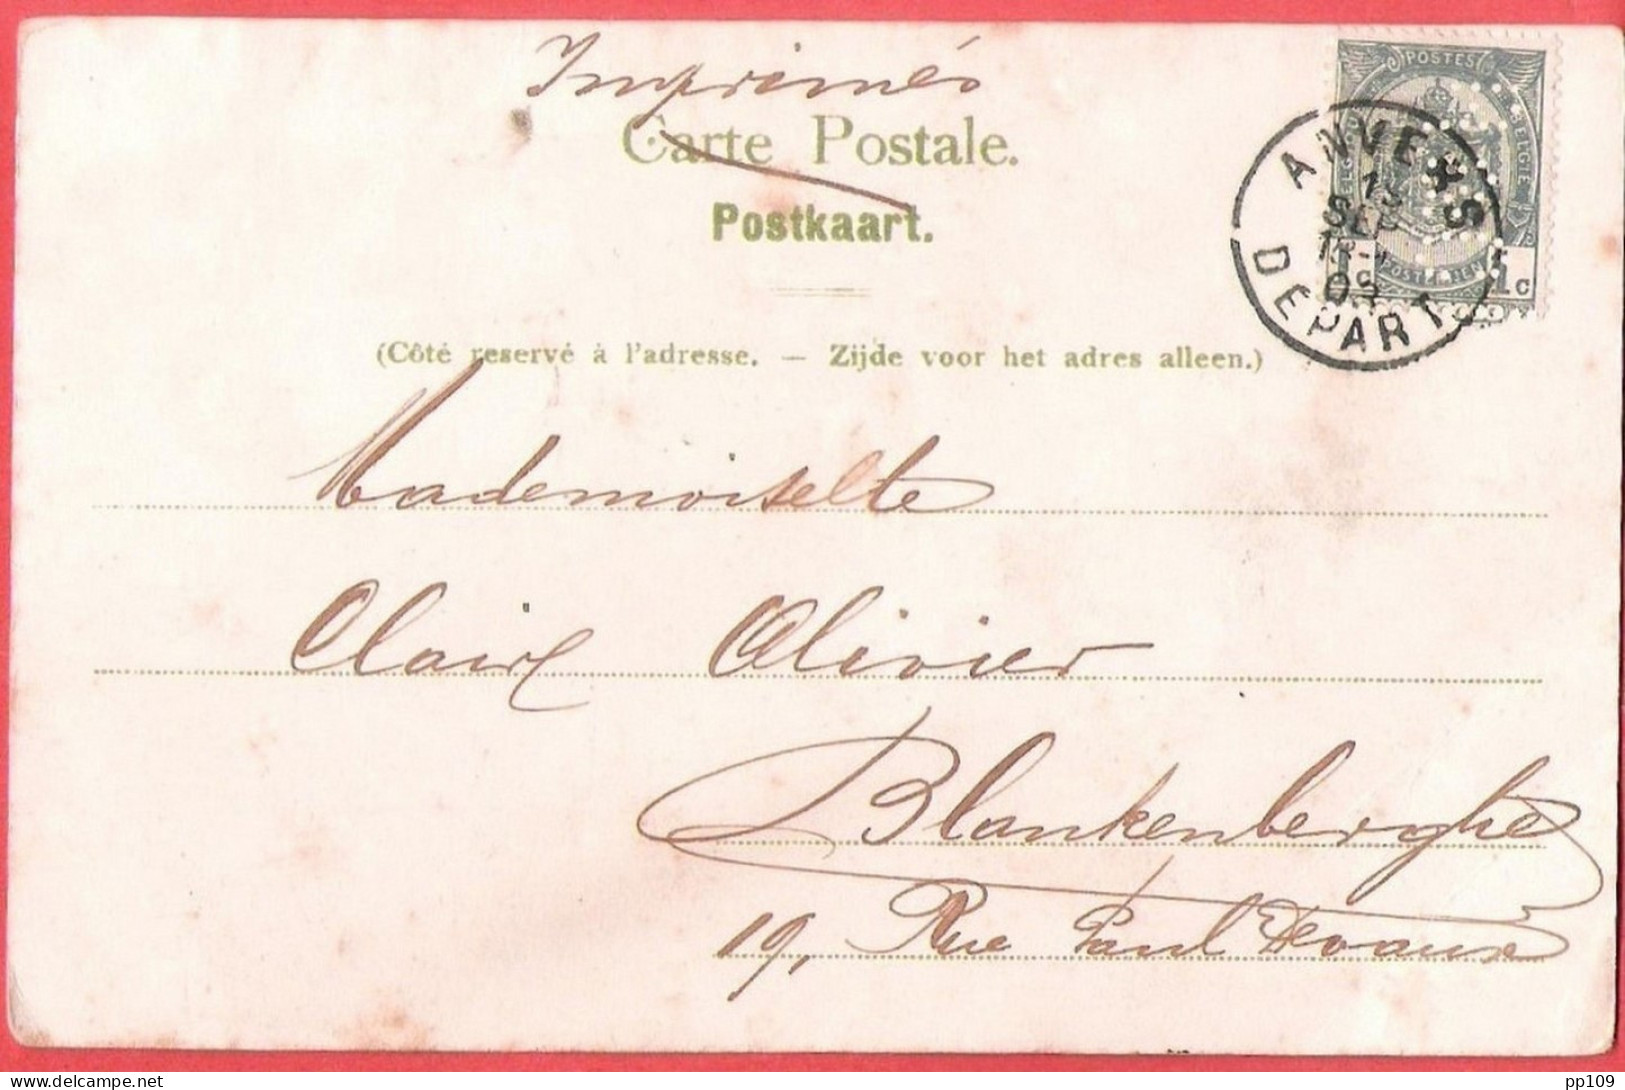 Imprimés
Carte Postale.
Postkaart.
(Côté reservé à l'adresse. — Zijde voor het adres alleen.)
POSTES
BELGIE
1c
ANVERS
SEP
DÉPART
Mademoiselle
Claire Olivier
Blankenberghe
19, Rue Paul Devaux
pp109